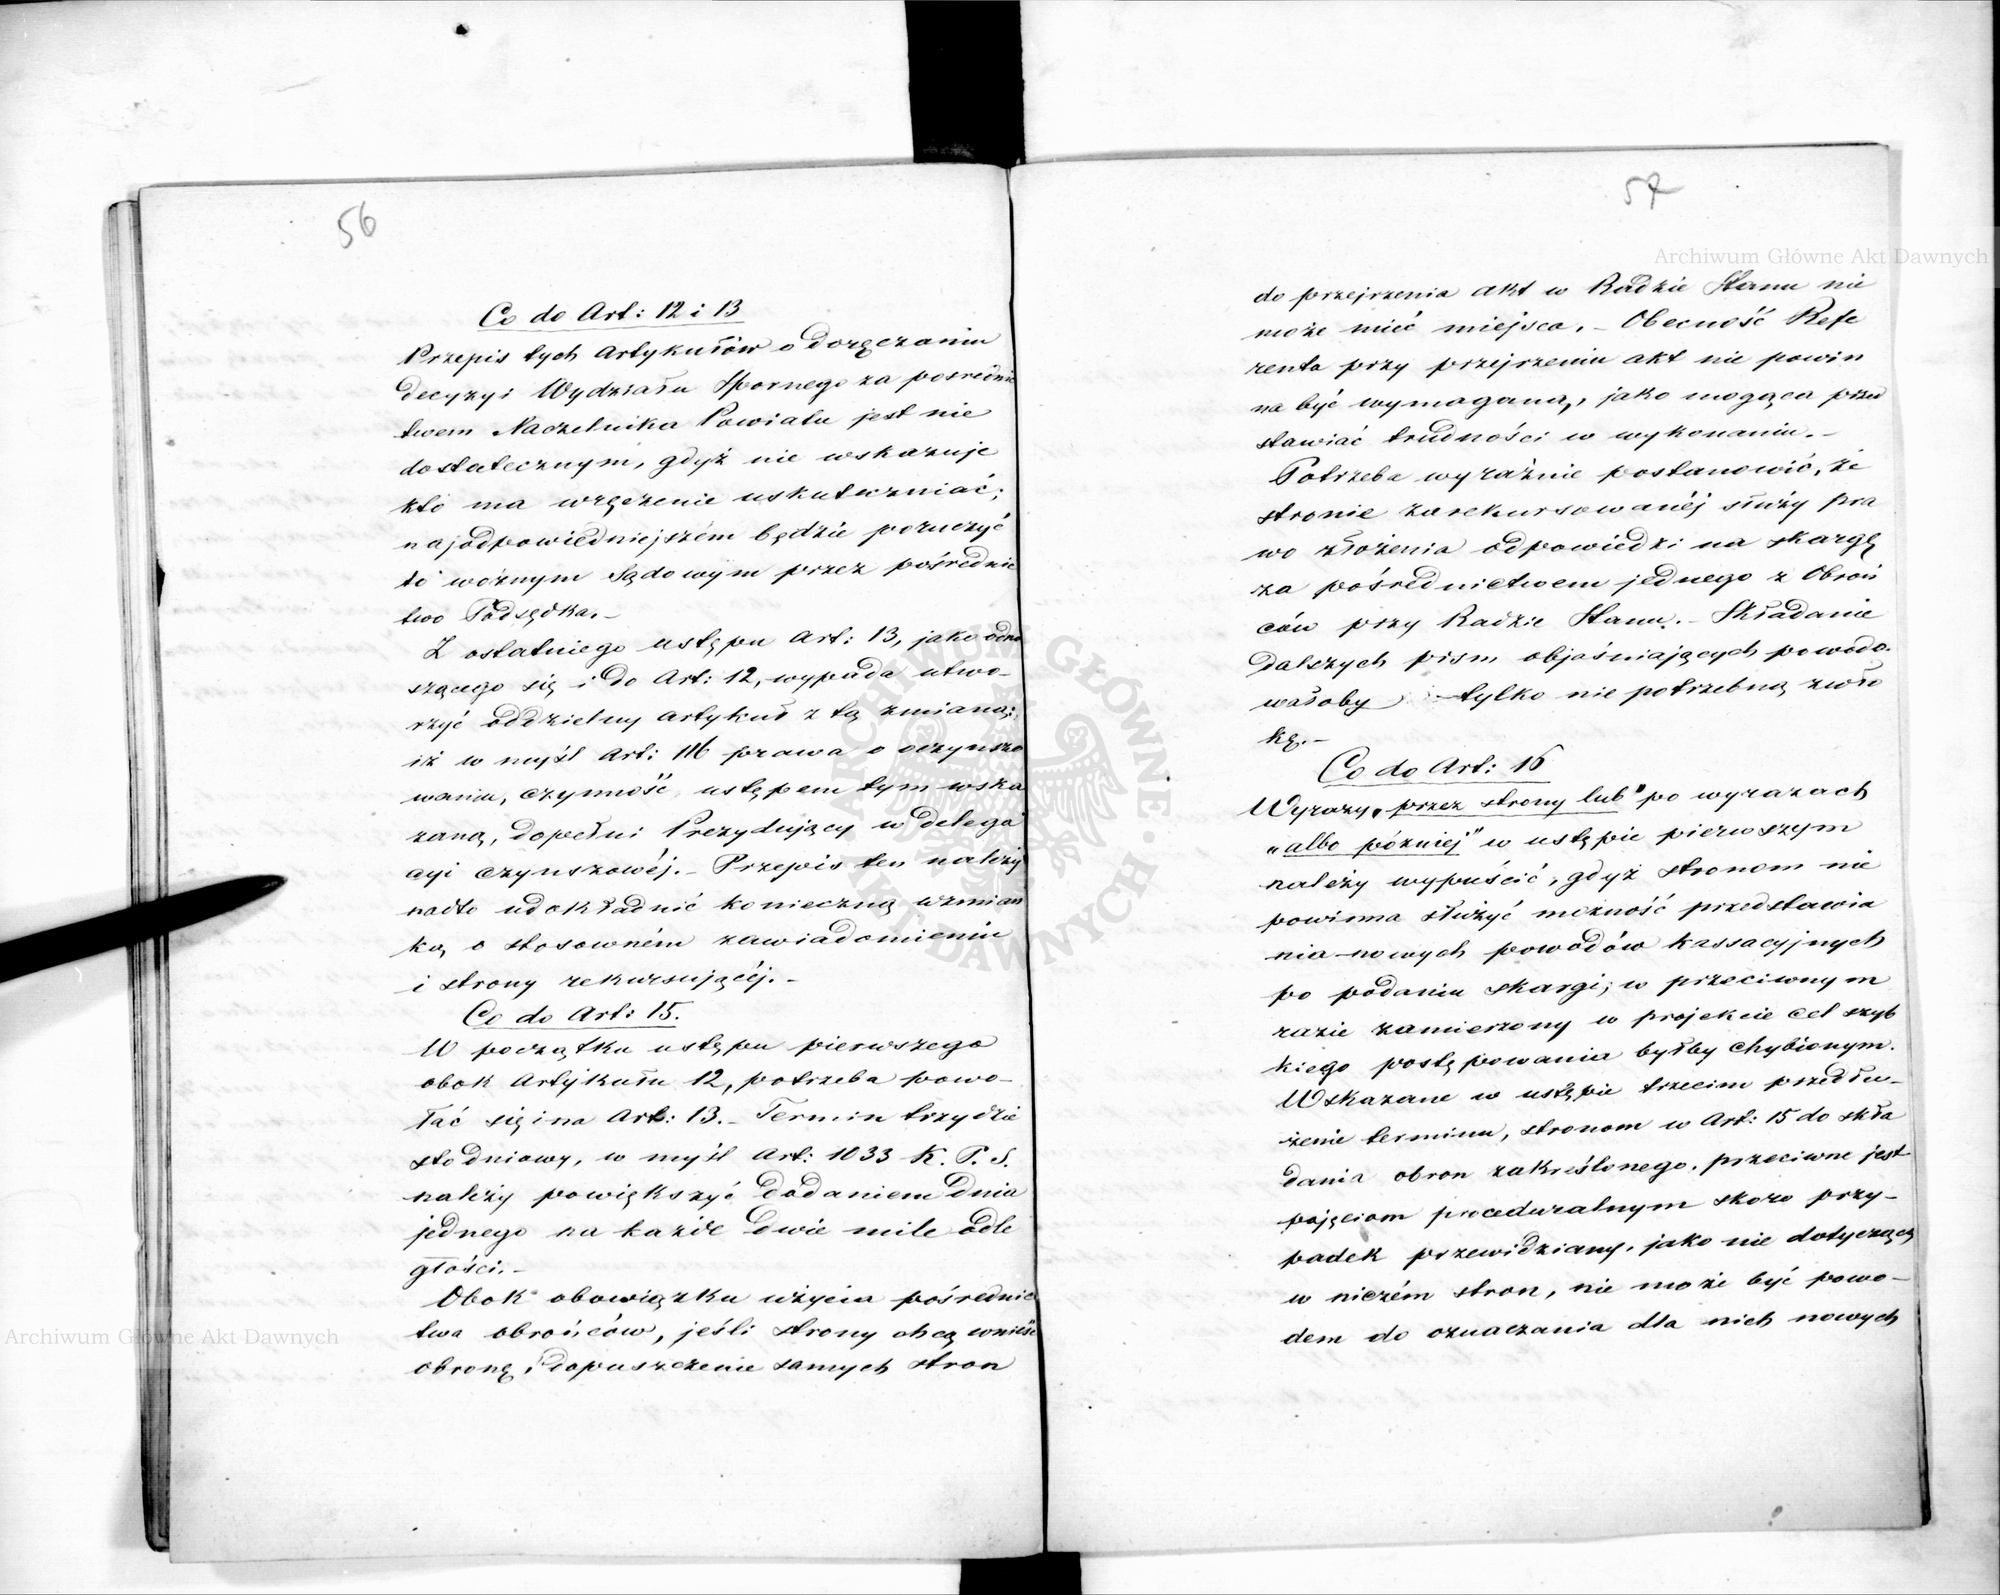 56
Co do Art: 12 i 13
Przepis tych Artykułów o doręczaniu
decyzyi Wydziału Spornego za pośrednic
twem Naczelnika Powiatu jest nie
dostatecznym, gdyż nie wskazuje
kto ma wręczenie uskuteczniać;
najodpowiedniejszém będzie poruczyć
to woźnym Sądowym przez pośrednic
two Podsędka.-
Z ostatniego ustępu Art: 13, jako odno
szącego się i do Art: 12, wypada utwo-
rzyć oddzielny Artykuł z tą zmianą;
iż w myśl Art: 116 prawa o oczynszo
waniu, czynność ustępem tym wska
zaną, dopełni Prezydujący w delega
cyi czynszowéj.- Przepis ten należy
nadto udokładnić konieczną wzmian
ką o stosowném zawiadomieniu
i strony rekursującéj.-
Co do Art: 15.
W początku ustępu pierwszego
obok Artykułu 12, potrzeba powo-
łać się i na Art: 13.- Termin trzydzie
stodniowy, w myśl Art: 1033 K. P. S.
należy powiększyć dodaniem dnia
jednego na każde dwie mile odle
głości.-
Obok obowiązku użycia pośrednic
twa obrońców, jeśli strony chcą wnieść
obronę, dopuszczenie samych stron
57
do przejrzenia akt w Radzie Stanu nie
może mieć miejsca.- Obecność Refe
renta przy przejrzeniu akt nie powin
na być wymaganą, jako mogąca przed
stawiać trudności w wykonaniu.-
Potrzeba wyraźnie postanowić, że
stronie zarekursowanéj służy pra
wo złożenia odpowiedzi na skargę
za pośrednictwem jednego z Obroń
ców przy Radzie Stanu.- Składanie
dalszych pism objaśniających powodo-
wałoby tylko nie potrzebną zwło
kę.-
Co do Art: 16
Wyrazy „przez strony lub" po wyrazach
„albo później" w ustępie pierwszym
należy wypuścić, gdyż stronom nie
powinna służyć możność przedstawia
nia nowych powodów kassacyjnych
po podaniu skargi; w przeciwnym
razie zamierzony w projekcie cel szyb
kiego postępowania byłby chybionym.
Wskazane w ustępie trzecim przedłu-
żenie terminu, stronom w Art: 15 do skła
dania obron zakreślonego, przeciwne jest
pojęciom proceduralnym skoro przy-
padek przewidziany, jako nie dotyczący
w niczém stron, nie może być powo-
dem do oznaczania dla nich nowych
Archiwum Główne Akt Dawnych
Archiwum Główne Akt Dawnych
ARCHIWUM GŁÓWNE · AKT DAWNYCH ·